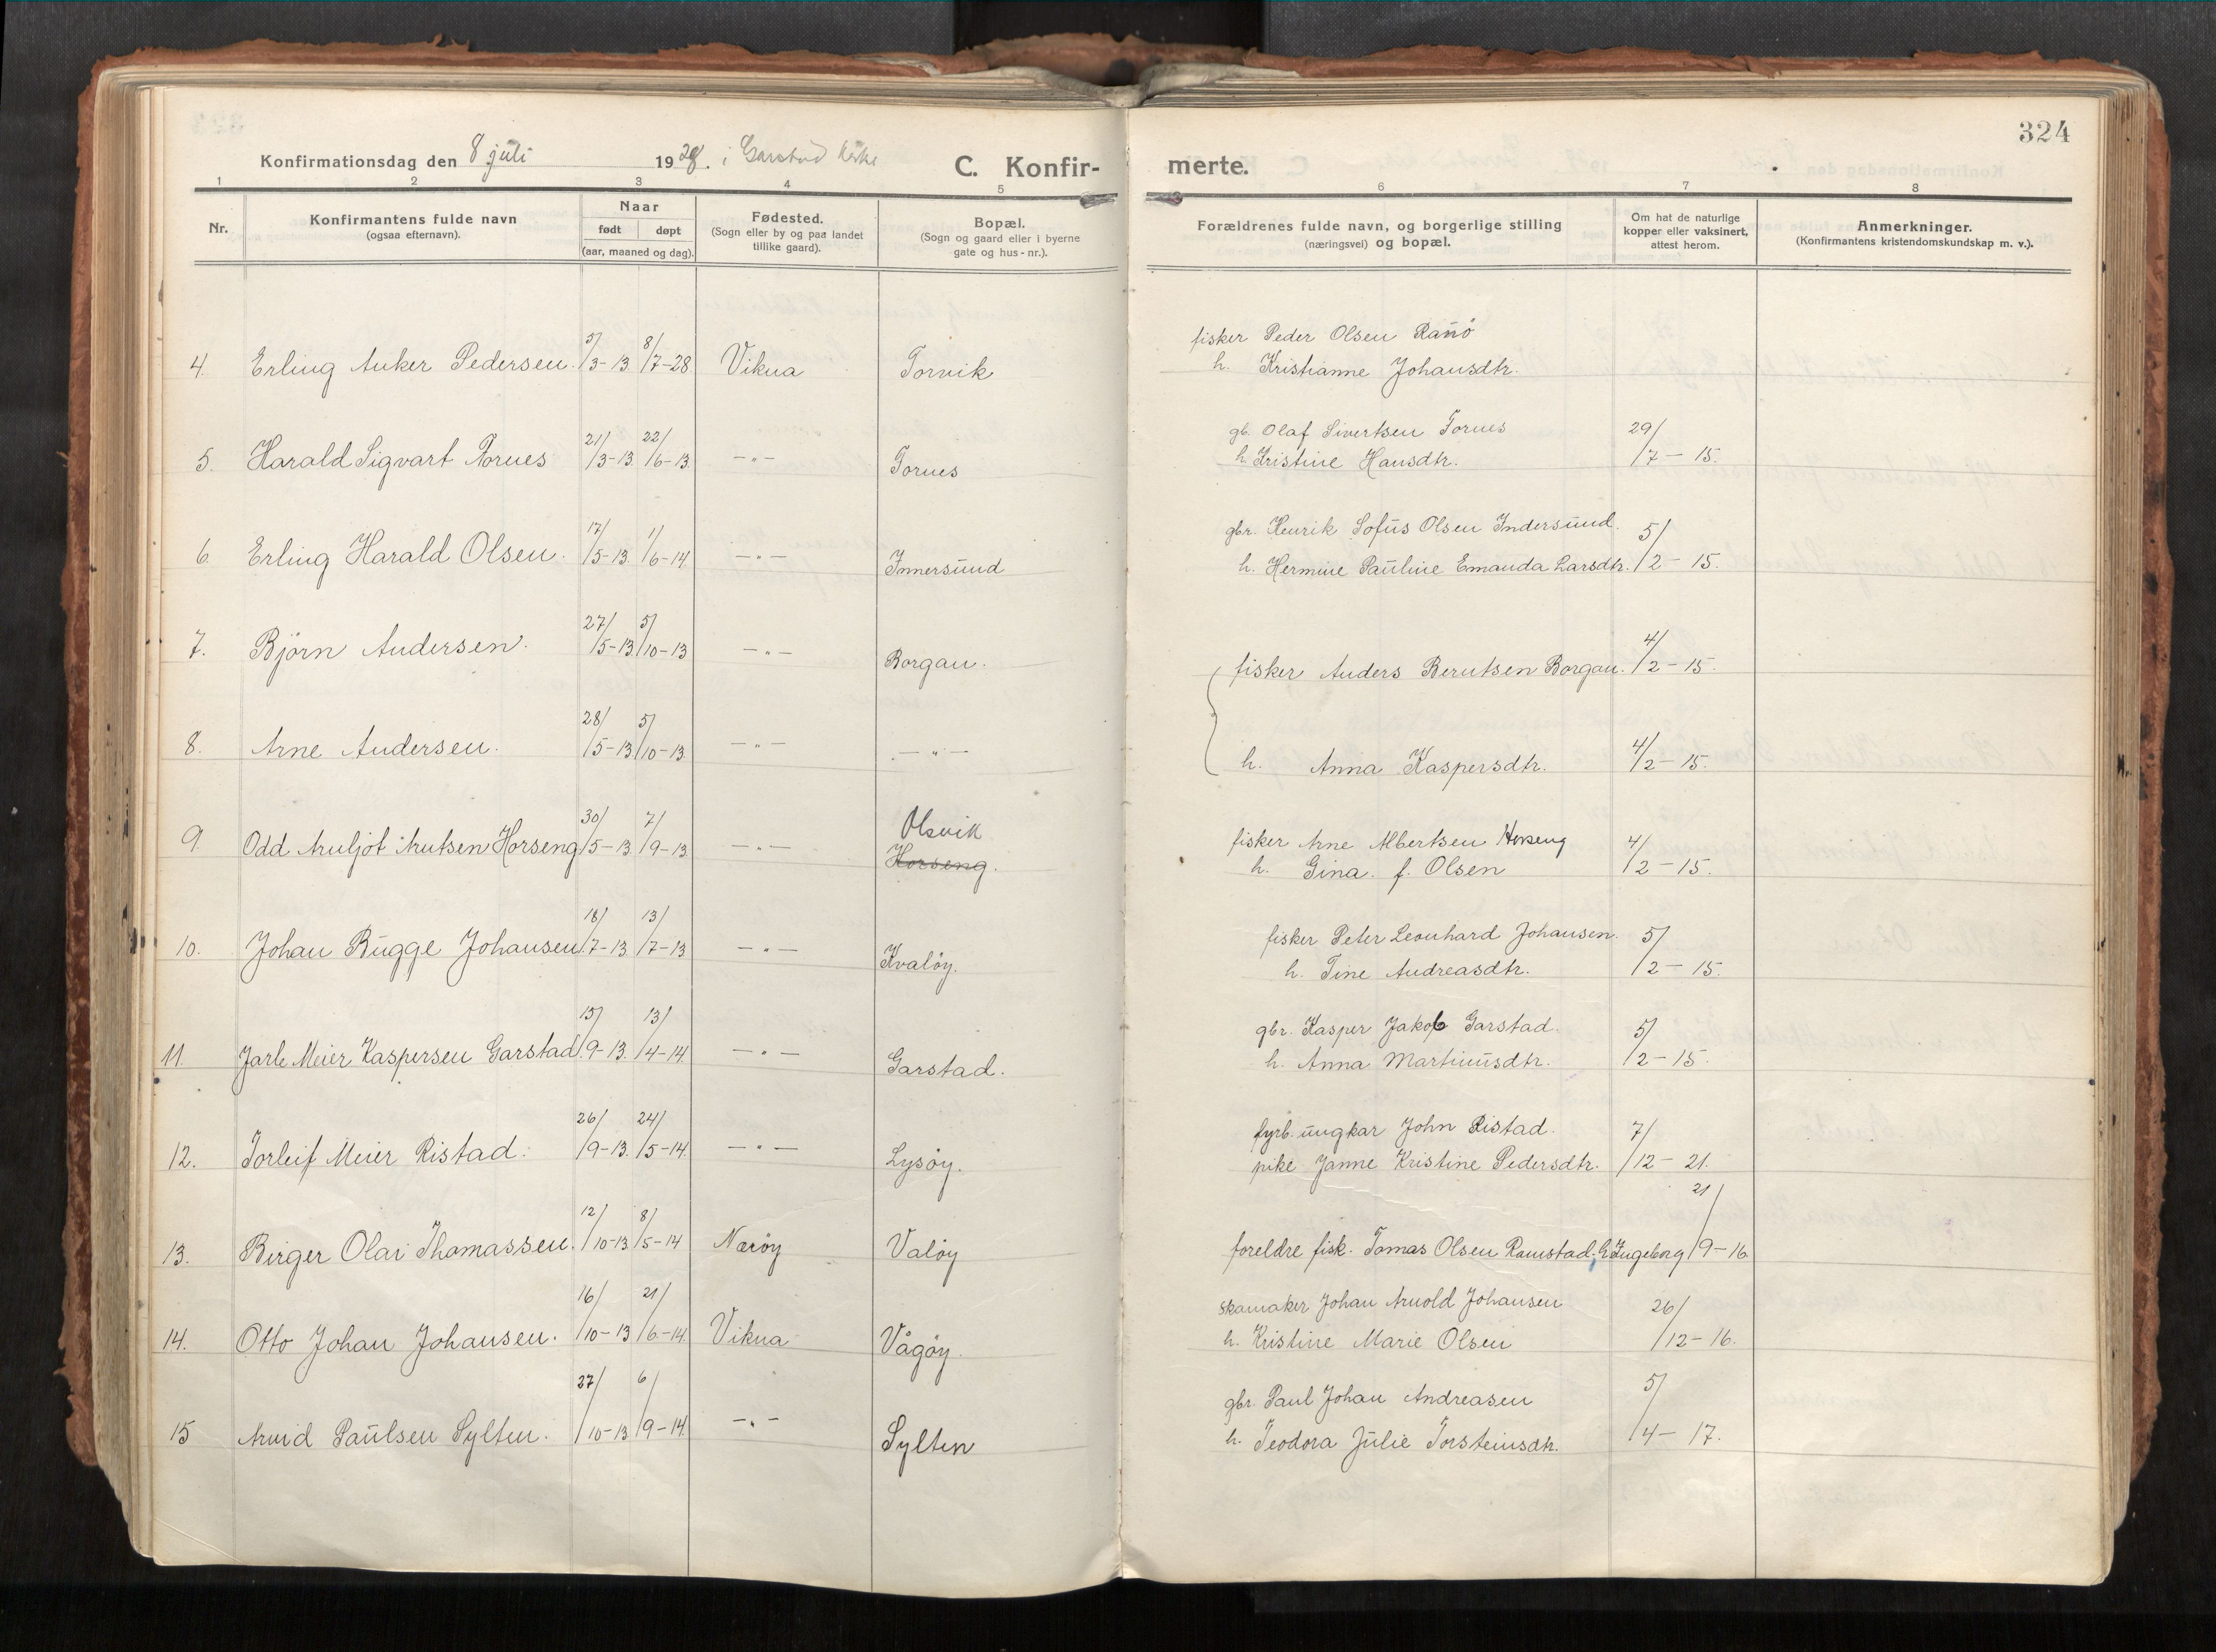 324
Konfirmationsdag den 8 juli 1928. i Garstad kirke
C. Konfir- merte.
1 2 3 4 5 6 7 8
Nr.
Konfirmantens fulde navn
(ogsaa efternavn).
Naar
født døpt
(aar, maaned og dag).
Fødested.
(Sogn eller by og paa landet
tillike gaard).
Bopæl.
(Sogn og gaard eller i byerne
gate og hus-nr.).
Forældrenes fulde navn, og borgerlige stilling
(næringsvei) og bopæl.
Om hat de naturlige
kopper eller vaksinert,
attest herom.
Anmerkninger.
(Konfirmantens kristendomskundskap m. v.).
fisker Peder Olsen Ranö
4. Erling Anker Pedersen. 5/3-13 8/7-28 Vikna Torvik h. Kristianne Johansdtr.
gb. Olaf Sivertsen Tornes
5. Harald Sigvart Tornes 21/3-13. 22/6-13. -"- Tornes h. Kristine Hansdtr. 29/7-15.
gbr. Henrik Sofus Olsen Indersund.
6. Erling Harald Olsen. 17/5-13 1/6-14. -"- Innersund h. Hermine Pauline Emanda Larsdtr. 5/2-15.
7. Björn Andersen. 27/5-13. 5/10-13 -"- Borgan. fisker Anders Berntsen Borgan. 4/2-15.
8. Arne Andersen. 28/5-13 5/10-13. -"- -"- h. Anna Kaspersdtr. 4/2-15.
Olsvik fisker Arne Albertsen Horseng
9. Odd Arnljot Arntsen Horseng 30/5-13 7/9-13. -"- Horseng. h. Gina f. Olsen 4/2-15.
fisker Peter Leonhard Johansen.
10. Johan Bugge Johansen 18/7-13. 13/7-13 -"- Kvalöy. h. Tine Andreasdtr. 5/2-15.
gbr. Kasper Jakob Garstad.
11. Jarle Meier Kaspersen Garstad 15/9-13. 13/4-14. -"- Garstad. h. Anna Martinusdtr. 5/2-15.
fyrb. ungkar John Ristad.
12. Torleif Meier Ristad. 26/9-13. 24/5-14. -"- Lysöy. pike Janne Kristine Pedersdtr. 7/12-21.
13. Birger Olai Thomassen. 12/10-13 8/5-14 Nærøy Valöy foreldre fisk. Tomas Olsen Ramstad, h Ingeborg 21/9-16
skomaker Johan Arnold Johansen
14. Otto Johan Johansen. 16/10-13 21/6-14. Vikna Vågöy. h. Kristine Marie Olsen 26/12-16.
gbr. Paul Johan Andreasen
15 Arvid Paulsen Sylten. 27/10-13 6/9-14. -"- Sylten h. Teodora Julie Torsteinsdtr. 5/4-17.